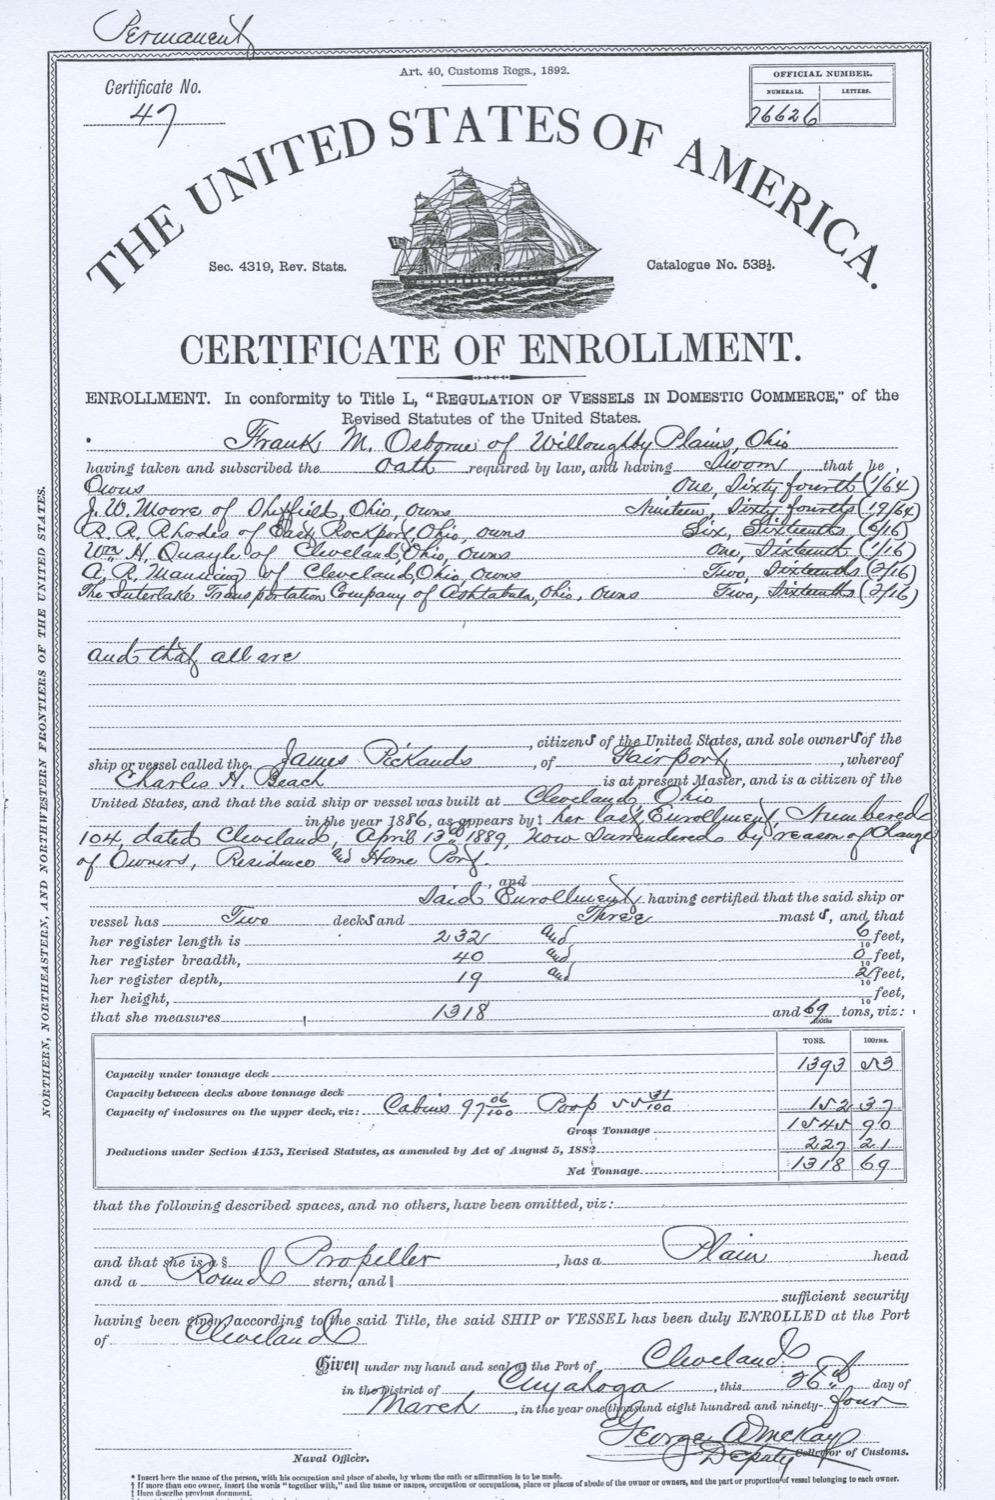 Permanent
Art. 40, Customs Regs., 1892.
Certificate No.
47
OFFICIAL NUMBER.
NUMERALS. LETTERS.
76626
THE UNITED STATES OF AMERICA.
Sec. 4319, Rev. Stats.
Catalogue No. 538½.
CERTIFICATE OF ENROLLMENT.
ENROLLMENT. In conformity to Title L, "REGULATION OF VESSELS IN DOMESTIC COMMERCE," of the
Revised Statutes of the United States.
* Frank M. Osborne of Willoughby Plains, Ohio
having taken and subscribed the Oath required by law, and having Sworn that he
Owns One, Sixty fourth (1/64)
J. W. Moore of Sheffield, Ohio, owns Nineteen, Sixty fourths (19/64)
R. R. Rhodes of East Rockport, Ohio, owns Six, Sixteenths (6/16)
Wm H. Quayle of Cleveland, Ohio, owns One, Sixteenth (1/16)
A. R. Manning of Cleveland, Ohio, owns Two, Sixteenths (2/16)
The Interlake Transportation Company of Ashtabula, Ohio, owns Two, Sixteenths (2/16)
and that all are
, citizens of the United States, and sole owners of the
ship or vessel called the James Pickands , of Fairport , whereof
Charles H. Beach is at present Master, and is a citizen of the
United States, and that the said ship or vessel was built at Cleveland, Ohio
in the year 1886, as appears by † her last Enrollment, Numbered
104, dated Cleveland, April 13th 1889, Now Surrendered by reason of Change
of Owners, Residence and Home Port.
, and
Said Enrollment having certified that the said ship or
vessel has Two decks and Three masts, and that
her register length is 232 and 6/10 feet,
her register breadth, 40 and 0/10 feet,
her register depth, 19 and 2/10 feet,
her height, /10 feet,
that she measures 1318 and 69/100ths tons, viz:
TONS. 100THS.
Capacity under tonnage deck 1393 53
Capacity between decks above tonnage deck
Capacity of inclosures on the upper deck, viz: Cabins 97 06/100 Poop 55 31/100 152 37
Gross Tonnage 1545 90
Deductions under Section 4153, Revised Statutes, as amended by Act of August 5, 1882 227 21
Net Tonnage 1318 69
that the following described spaces, and no others, have been omitted, viz:
and that she is a § Propeller , has a Plain head
and a Round stern, and ‖
sufficient security
having been given according to the said Title, the said SHIP or VESSEL has been duly ENROLLED at the Port
of Cleveland
Given under my hand and seal of the Port of Cleveland
in the District of Cuyahoga , this 26th day of
March , in the year one thousand eight hundred and ninety-four
George A McKay
Deputy Collector of Customs.
Naval Officer.
* Insert here the name of the person, with his occupation and place of abode, by whom the oath or affirmation is to be made.
† If more than one owner, insert the words "together with," and the name or names, occupation or occupations, place or places of abode of the owner or owners, and the part or proportion of vessel belonging to each owner.
‡ Here describe previous document.
NORTHERN, NORTHEASTERN, AND NORTHWESTERN FRONTIERS OF THE UNITED STATES.